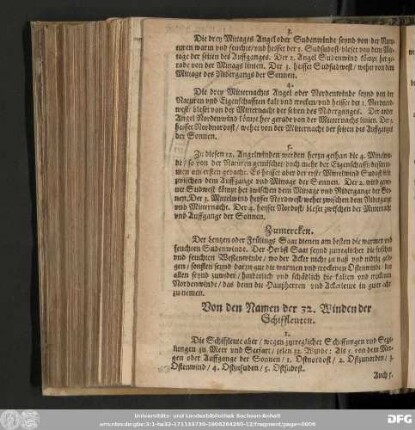 3.
Die drey Mittages Angel oder Sudenwinde seynd von der Na-
turen warm und feuchte/ und heisset der 1. Sudsudost bleset von dem Mit-
tage der seiten des Auffganges. Der 2. Angel Sudenwind kömpt her ge-
rade von der Mittags linien. Der 3. heisset Sudsudwest/ wehet von dem
Mittage des Nidergangs der Sonnen.
4.
Die drey Mitternachtes Angel oder Nordenwinde seynd von der
Naturen und Eigenschafften kalt und trocken und heisset der 1. Norden
west/ bleset von der Mitternacht der seiten des Niderganges. Der
Angel Nordenwind kömpt her gerade von der Mitternachts linien. Der 3.
heisset Nordnordost/ wehet von der Mitternacht der seiten des Auffgangs
der Sonnen.
5.
Zu diesen 12. Angelwinden werden hierzu gethan die 4. Mittelwin-
de/ so von der Naturen gemischter
zwischen dem Auffgange und Mittage der Sonnen. Der 2. wird
Sudwest kömpt her zwischen dem Mittage und Nidergange der Son-
nen. Der 3. Mittelwind heisset Nordwest wehet zwischen dem Nidergange
und Mitternacht. Der 4. heisset Nordost/ bleset zwischen der Mitternacht
und Auffgange der Sonnen.
Zumercken.
Der Lentzen oder Frülings Saat dienen am besten die warmen und
feuchten Sudenwinde. Der Herbst Saat seynd zutreglicher die feuchten
und feuchten Westenwinde/ wo der Acker nicht zu naß und nidrig gele-
gen/ sonsten seynd darzu gut die warmen und trockenen Ostenwinde. In
allen seynd zuwider/ hinderlich und schädlich die kalten und trocknen
Nordenwinde/
zu nemen.
Von den Namen der 32. Winden der
Schiffleuten.
1.
Die Schiffleute aber/ wegen zutreglicher Schiffungen und Seg-
lungen zu Meer und Seefart/ zelen 32. Winde: Als 5. von dem Mor-
gen oder Auffgange der Sonnen/ 1. Ostnordost/ 2. Ostzunorden/ 3.
Ostenwind/ 4. Ostzusuden/ 5. Ostsudost.
Auch 5.
Universitäts- und Landesbibliothek Sachsen-Anhalt